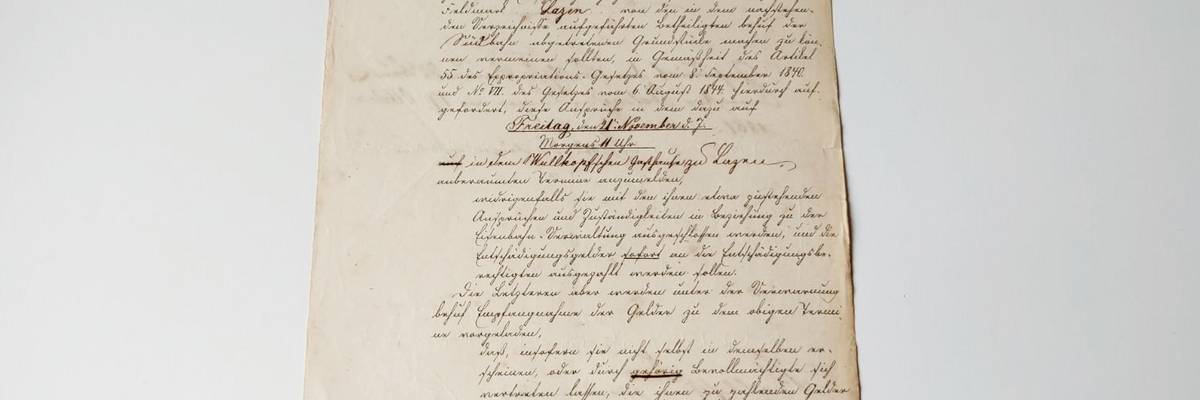 Feldmark Lazen von den in dem nachstehen-
den Verzeichnisse aufgeführten Betheiligten behuf der
Südbahn abgetretenen Grundstücke machen zu kön-
nen vermeinen sollten, in Gemäßheit des Artikel
55 des Expropriations-Gesetzes vom 8. September 1840.
und No VII. des Gesetzes vom 6. August 1844. hierdurch auf-
gefordert, diese Ansprüche in dem dazu auf
Freitag, den 21t. November d. J.
Morgens 11 Uhr
in dem Wullkopfschen Gasthause zu Lazen
anberaumten Termine anzumelden,
widrigenfalls sie mit den ihnen etwa zustehenden
Ansprüchen und Zuständigkeiten in Beziehung zu der
Eisenbahn-Verwaltung ausgeschlossen werden, und die
Entschädigungsgelder sofort an die Entschädigungsbe-
rechtigten ausgezahlt werden sollen.
Die Letzteren aber werden unter der Verwarnung
behuf Empfangnahme der Gelder zu dem obigen Termi-
ne vorgeladen,
daß, insofern sie nicht selbst in demselben er-
scheinen, oder durch gehörig Bevollmächtigte sich
vertreten lassen, die ihnen zu zahlenden Gelder